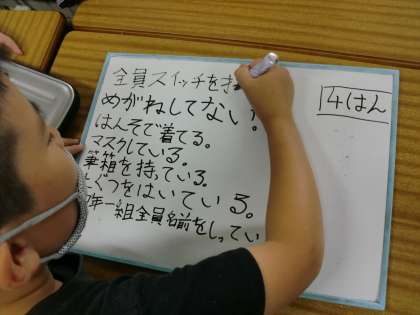 全員スイッチを
めがねしてない?。
はんそで着てる。
マスクしている。
筆箱を持っている。
くつをはいている。
年一組全員名前をしってい
4はん